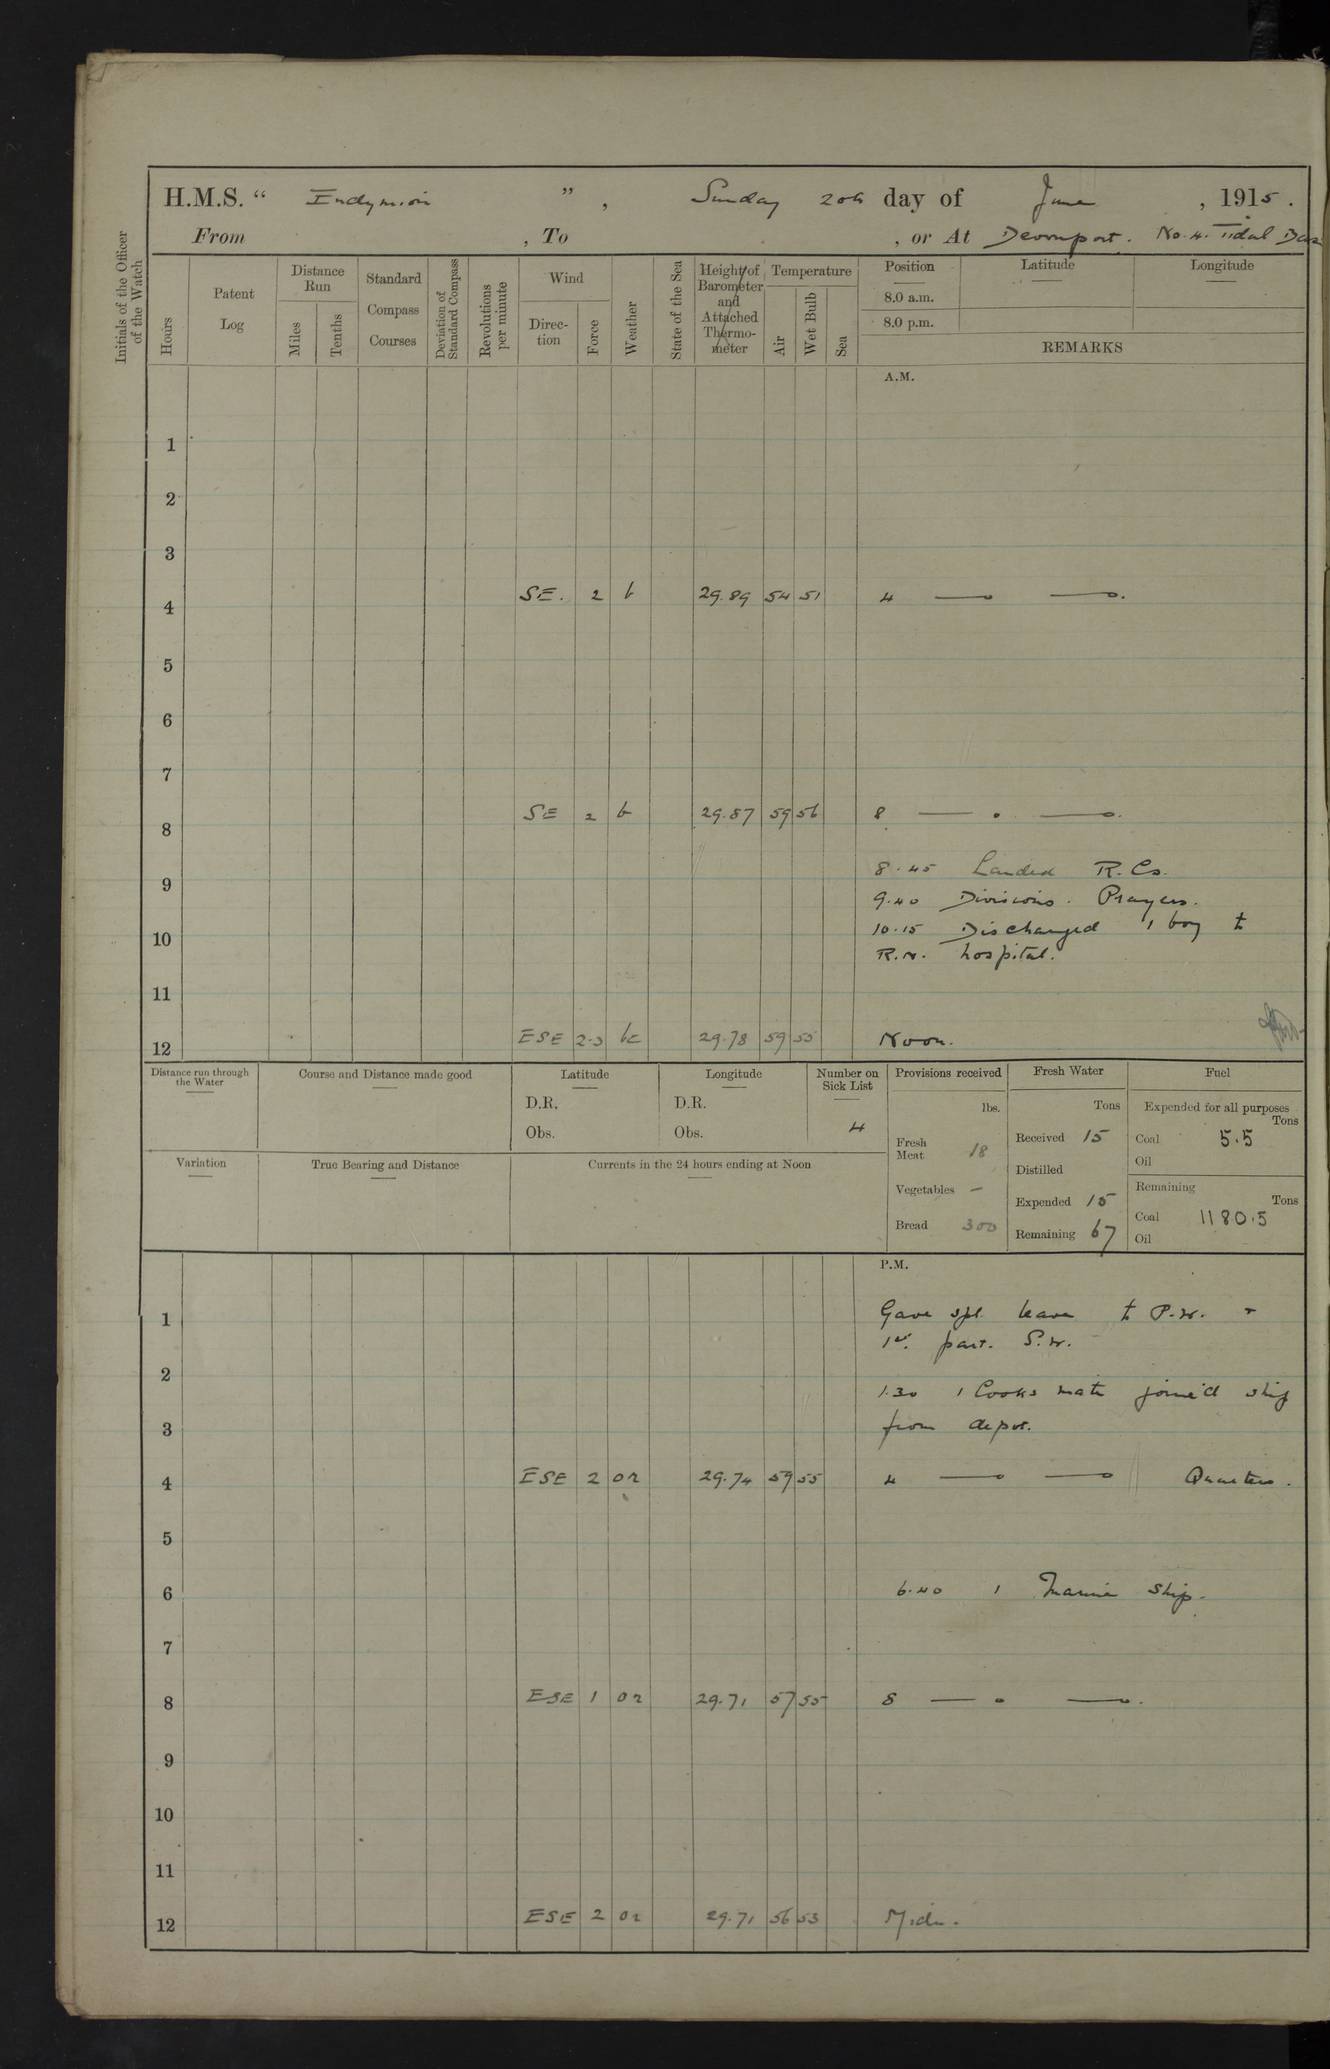 H.M.S. “ Endymion ” , Sunday 20th day of June , 1915 .
From , To , or At Devonport. No. 4. Tidal Basin
Initials of the Officer of the Watch
Hours
Patent Log
Distance Run
Miles
Tenths
Standard Compass Courses
Deviation of Standard Compass
Revolutions per minute
Wind
Direc-tion
Force
Weather
State of the Sea
Height of Barometer and Attached Thermo-meter
Temperature
Air
Wet Bulb
Sea
Position
8.0 a.m.
8.0 p.m.
Latitude
Longitude
REMARKS
A.M.
1
2
3
4 SE. 2 b 29.89 54 51 4
5
6
7
8 SE 2 b 29.87 59 56 8
8.45 Landed R.Cs.
9
9.40 Divisions. Prayers.
10 10.15 Discharged 1 boy to
R.N. hospital.
11
12 ESE 2-3 bc 29.78 59 55 Noon.
Distance run through the Water
Course and Distance made good
Latitude
D.R.
Obs.
Longitude
D.R.
Obs.
Number on Sick List
4
Provisions received
lbs.
Fresh Meat 18
Vegetables —
Bread 300
Fresh Water
Tons
Received 15
Distilled
Expended 15
Remaining 67
Fuel
Expended for all purposes
Tons
Coal 5.5
Oil
Remaining
Tons
Coal 1180.5
Oil
Variation
True Bearing and Distance
Currents in the 24 hours ending at Noon
P.M.
1 Gave spl. leave to P.W. +
1st. part. S.W.
2
1.30 1 Cooks mate joined ship
3 from depot.
4 ESE 2 or 29.74 59 55 4 Quarters.
5
6 6.40 1 Marine ship.
7
8 ESE 1 or 29.71 57 55 8
9
10
11
12 ESE 2 or 29.71 56 53 Midn.